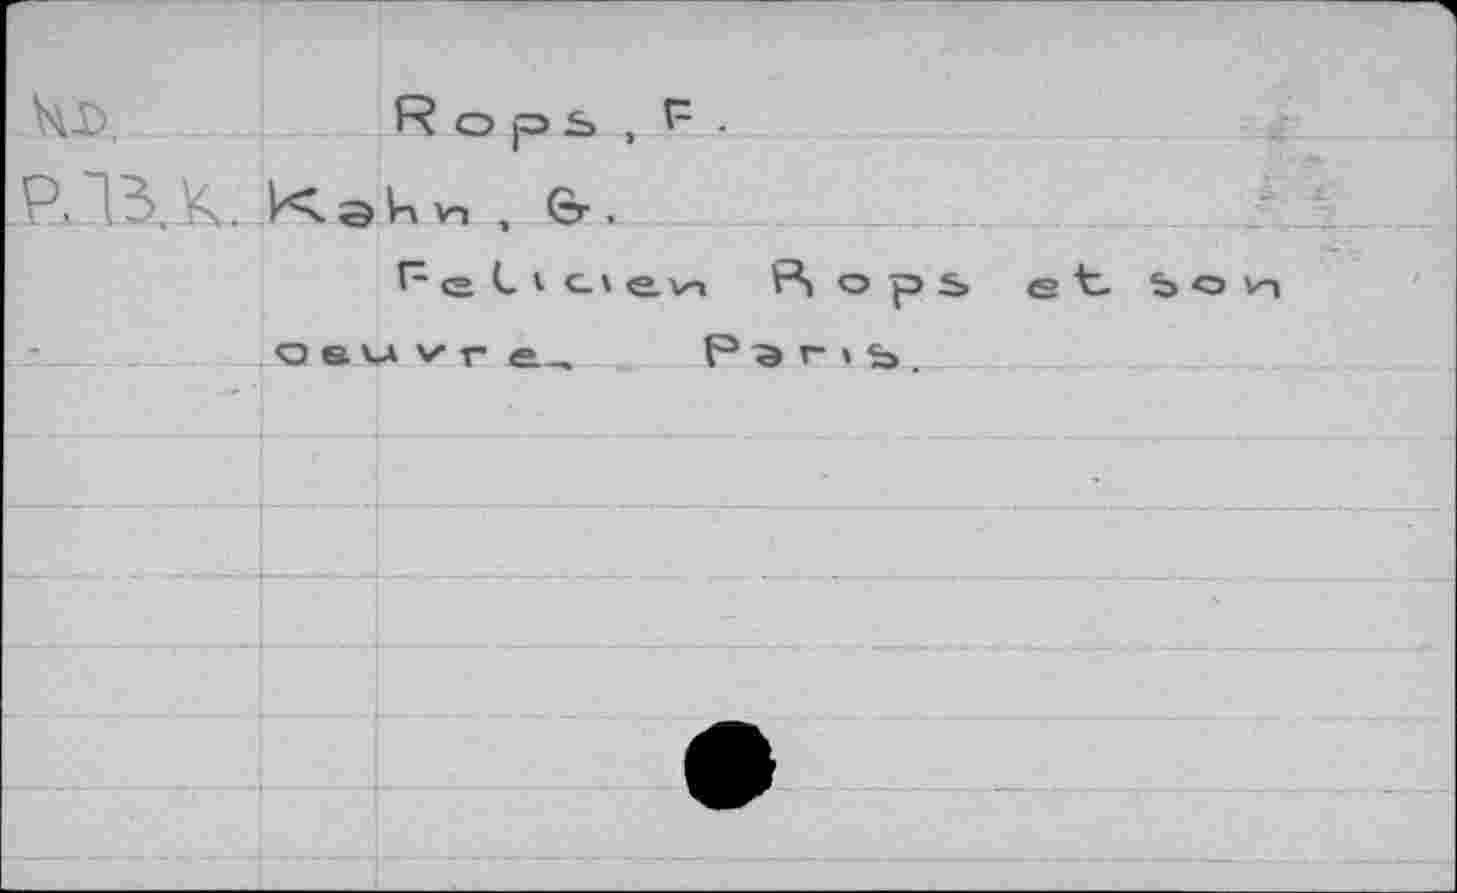 ND. Rops, F.
P.13.K. Kahn, G.
Felicien Rops et son
oeuvre, Paris.